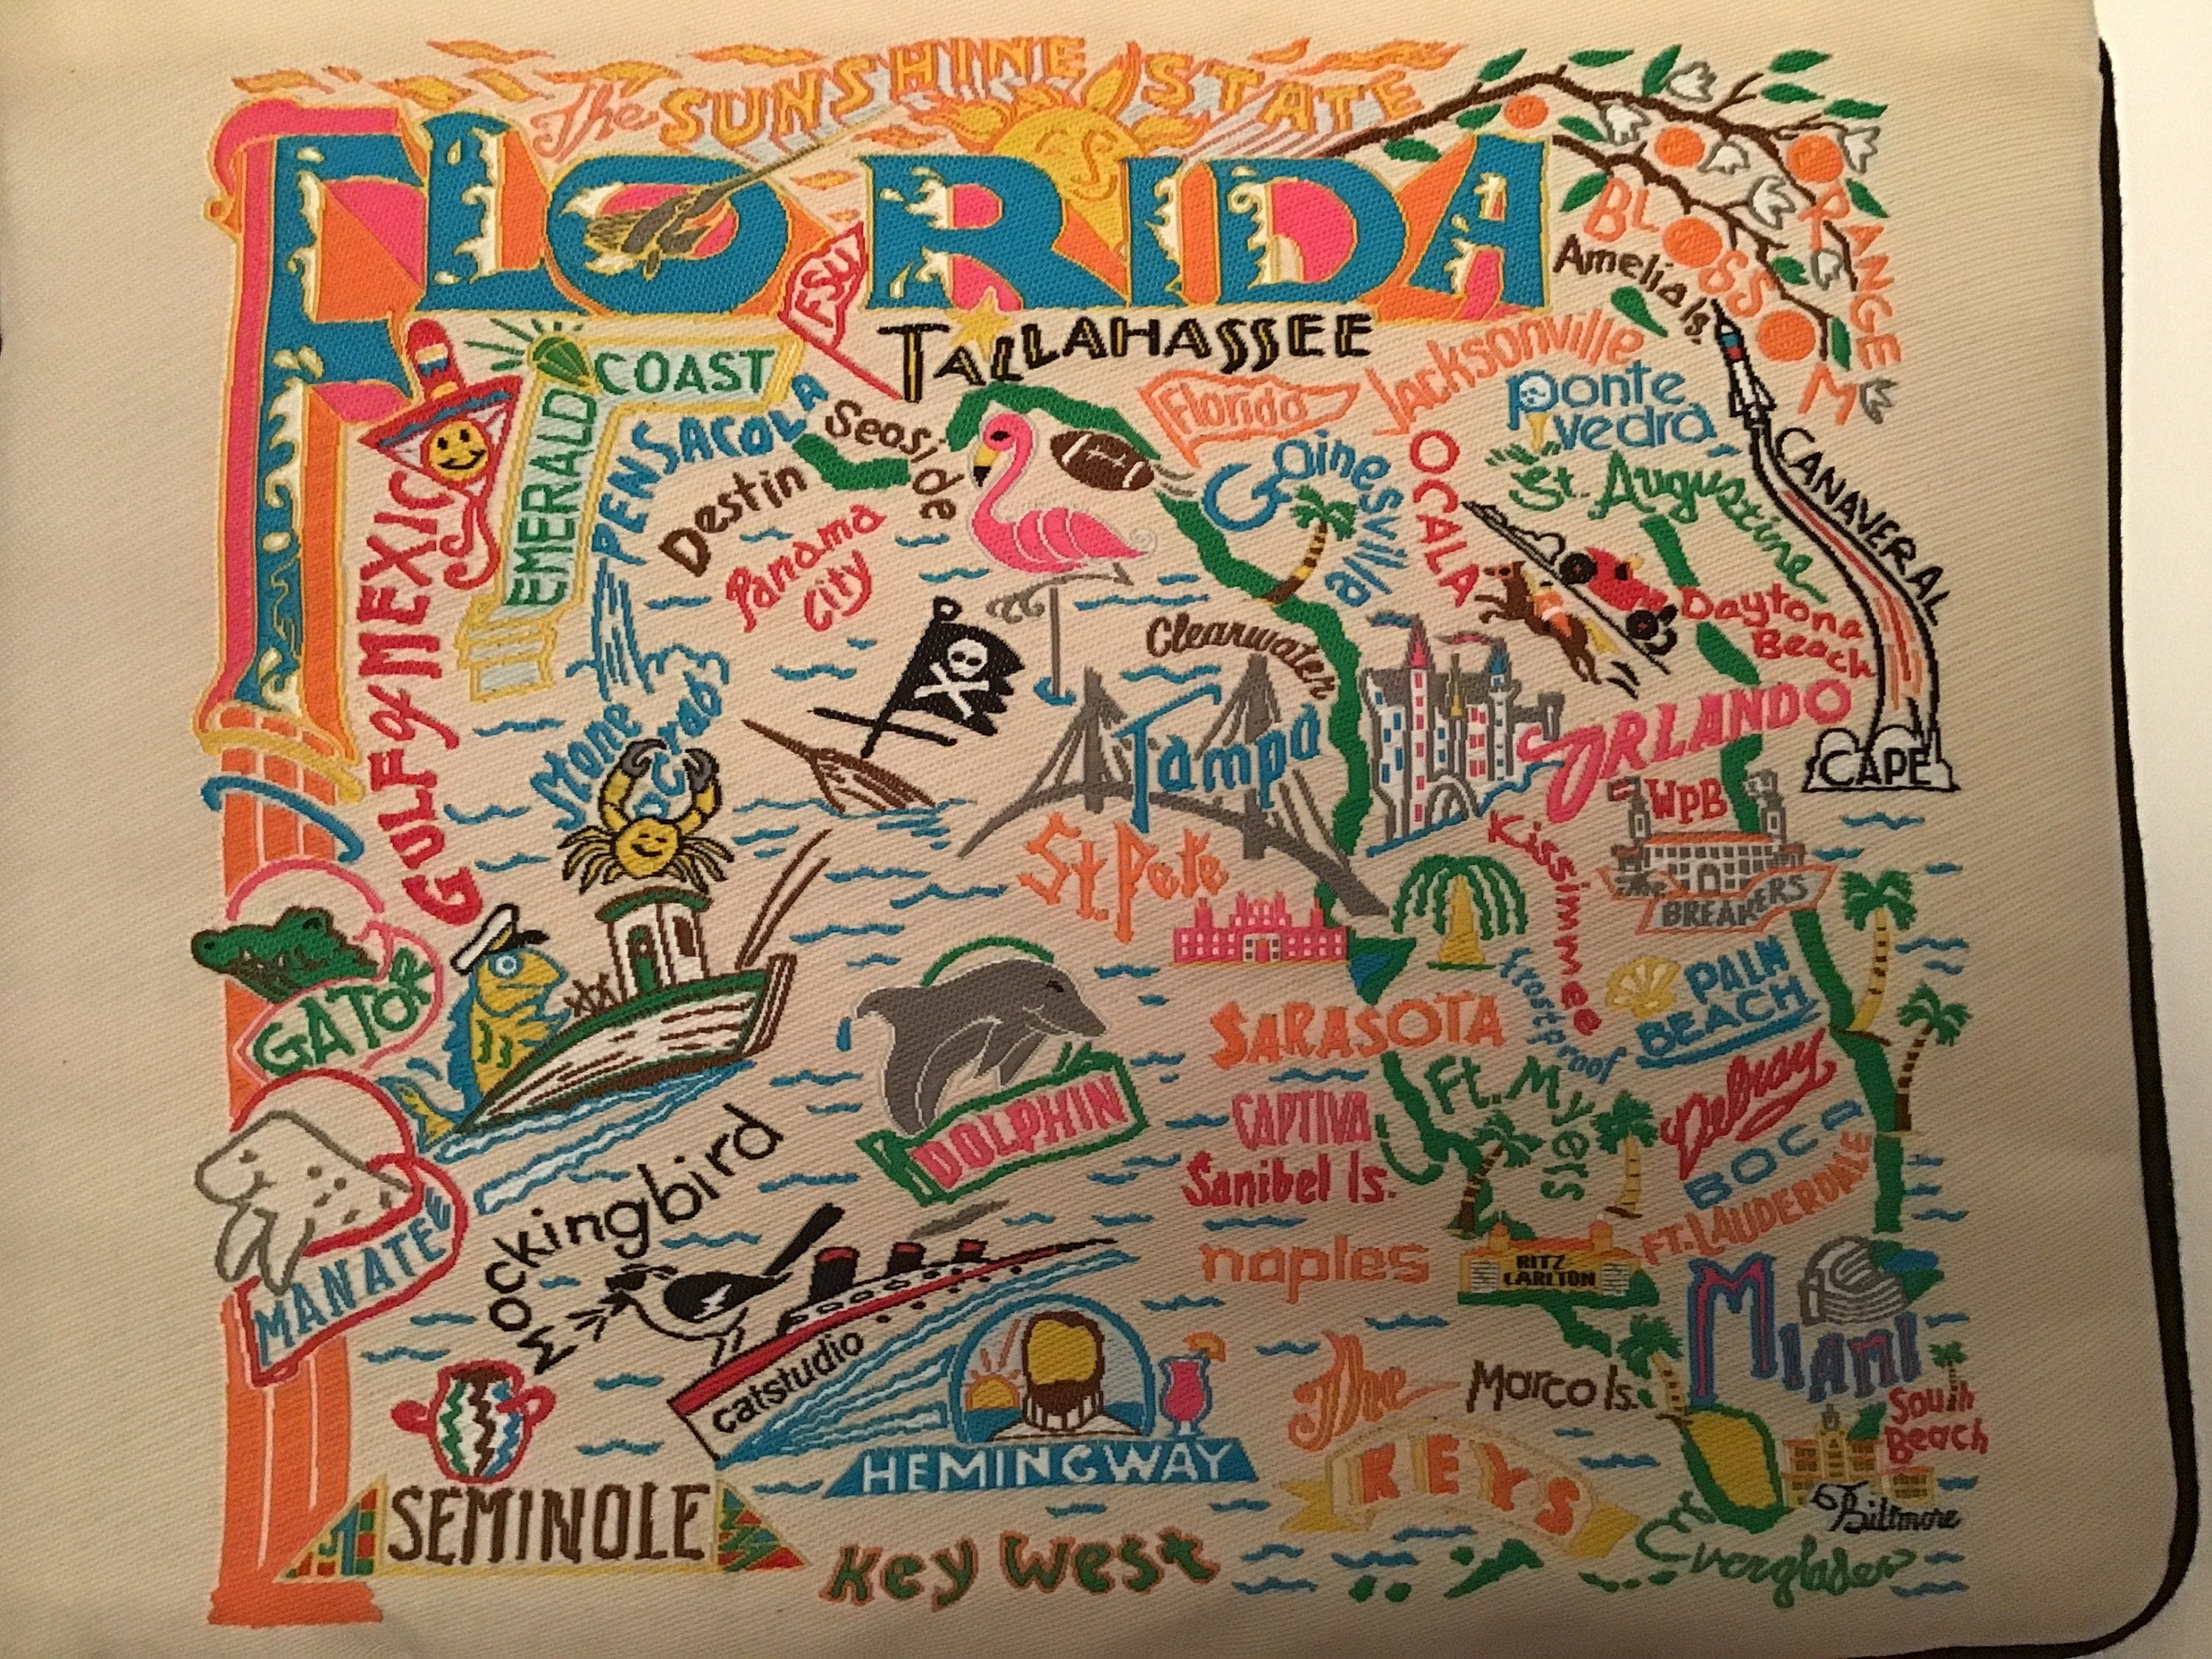 The SUNSHINE STATE
FLORIDA
ORANGE
BLOSSOM
Amelia Is.
FSU
TALLAHASSEE
EMERALD COAST
GULF of MEXICO
PENSACOLA
Destin
Seaside
Panama
City
Florida
Jacksonville
Gainesville
OCALA
Ponte
Vedra
St. Augustine
CANAVERAL
CAPE
Daytona
Beach
Clearwater
Stone
Crab
Tampa
ORLANDO
St. Pete
Kissimmee
WPB
The
BREAKERS
GATOR
SARASOTA
Frostproof
PALM
BEACH
DOLPHIN
CAPTIVA
Sanibel Is.
Ft. Myers
Delray
BOCA
FT. LAUDERDALE
MANATEE
Mockingbird
naples
RITZ-
CARLTON
MIAMI
catstudio
HEMINGWAY
The
KEYS
Marco Is.
South
Beach
Biltmore
SEMINOLE
Key West
Everglades